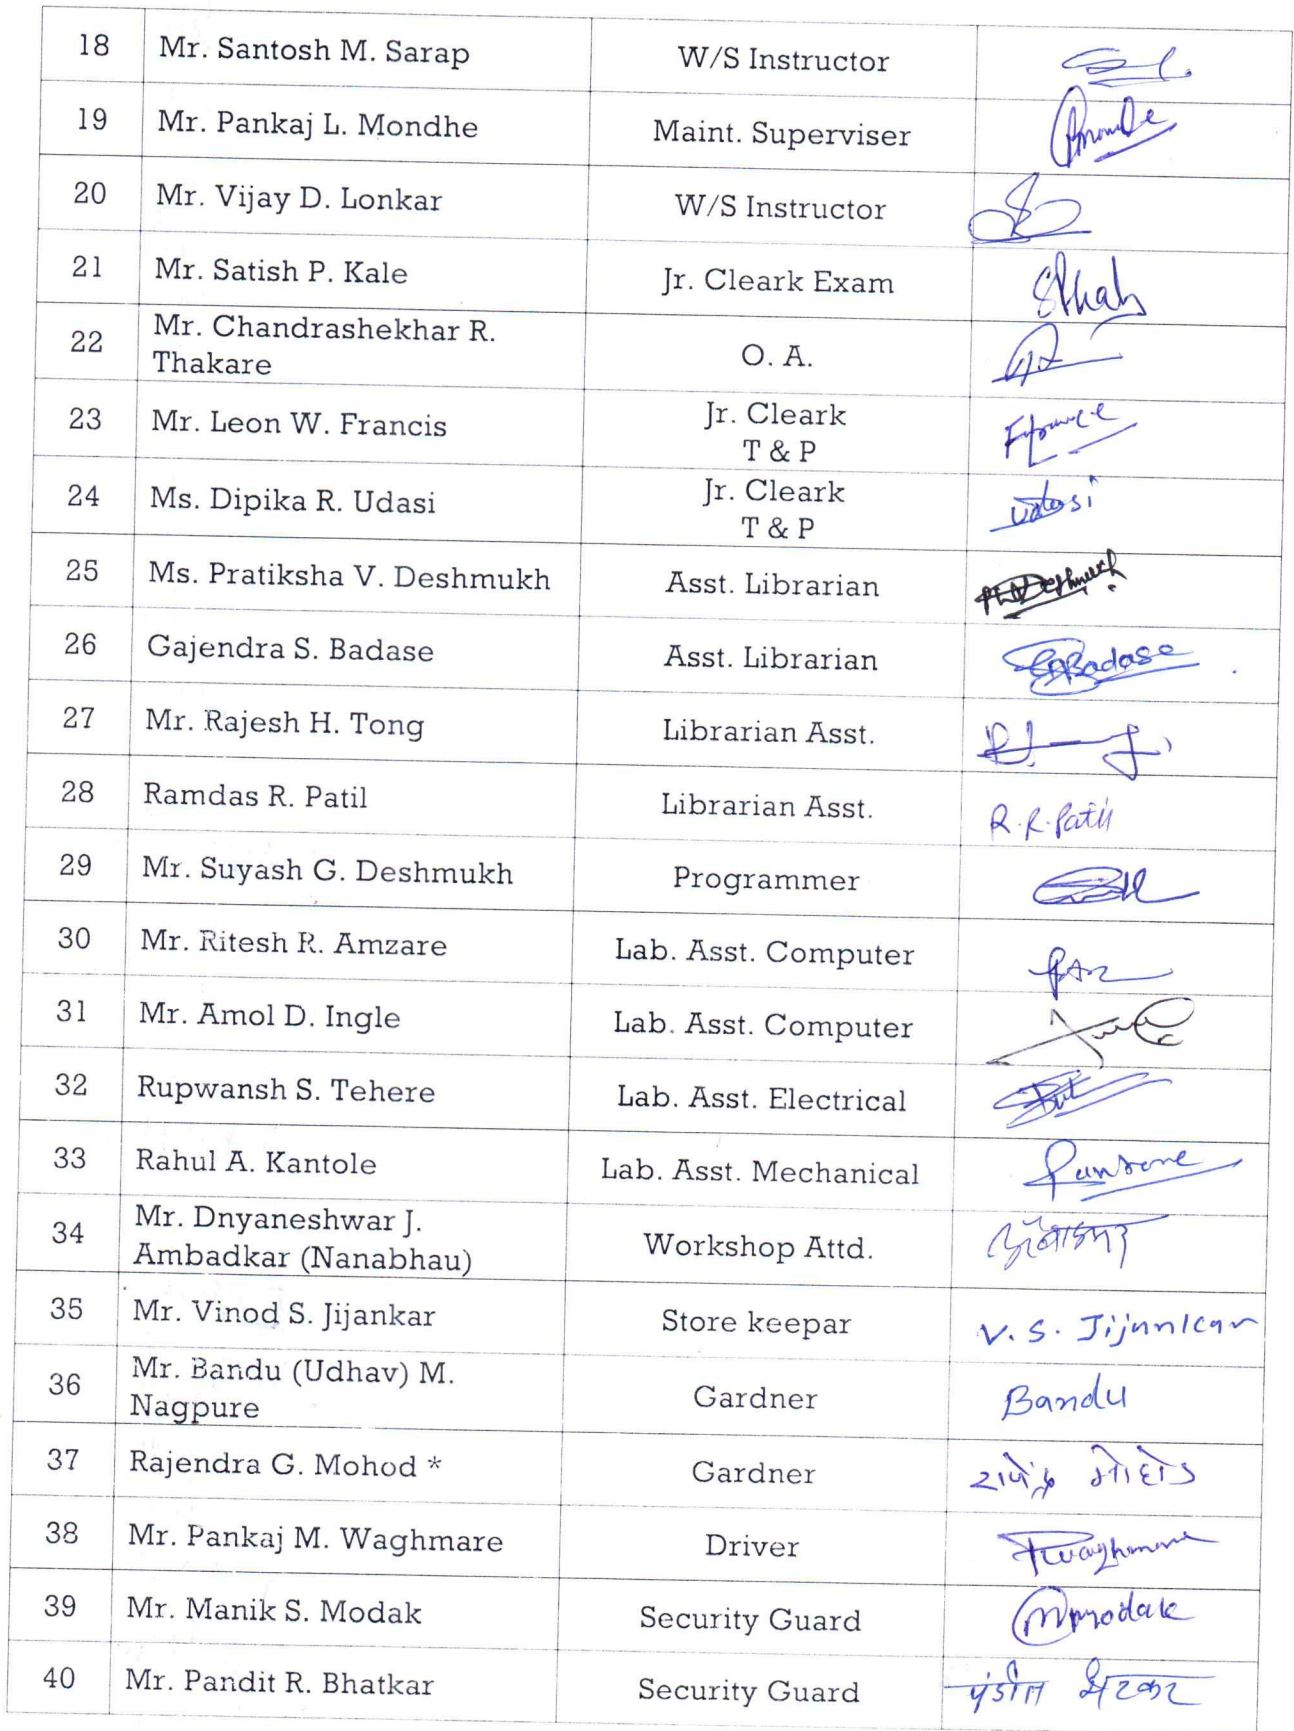 18 Mr. Santosh M. Sarap W/S Instructor
19 Mr. Pankaj L. Mondhe Maint. Superviser
20 Mr. Vijay D. Lonkar W/S Instructor
21 Mr. Satish P. Kale Jr. Cleark Exam
22 Mr. Chandrashekhar R.
Thakare O. A.
23 Mr. Leon W. Francis Jr. Cleark
T & P
24 Ms. Dipika R. Udasi Jr. Cleark
T & P Udasi
25 Ms. Pratiksha V. Deshmukh Asst. Librarian Deshmukh
26 Gajendra S. Badase Asst. Librarian Badase
27 Mr. Rajesh H. Tong Librarian Asst.
28 Ramdas R. Patil Librarian Asst. R.R.Patil
29 Mr. Suyash G. Deshmukh Programmer
30 Mr. Ritesh R. Amzare Lab. Asst. Computer
31 Mr. Amol D. Ingle Lab. Asst. Computer
32 Rupwansh S. Tehere Lab. Asst. Electrical
33 Rahul A. Kantole Lab. Asst. Mechanical
34 Mr. Dnyaneshwar J.
Ambadkar (Nanabhau) Workshop Attd.
35 Mr. Vinod S. Jijankar Store keepar V. S. Jijankar
36 Mr. Bandu (Udhav) M.
Nagpure Gardner Bandu
37 Rajendra G. Mohod * Gardner राजेंद्र मोहोड
38 Mr. Pankaj M. Waghmare Driver
39 Mr. Manik S. Modak Security Guard
40 Mr. Pandit R. Bhatkar Security Guard पंडीत भटकर